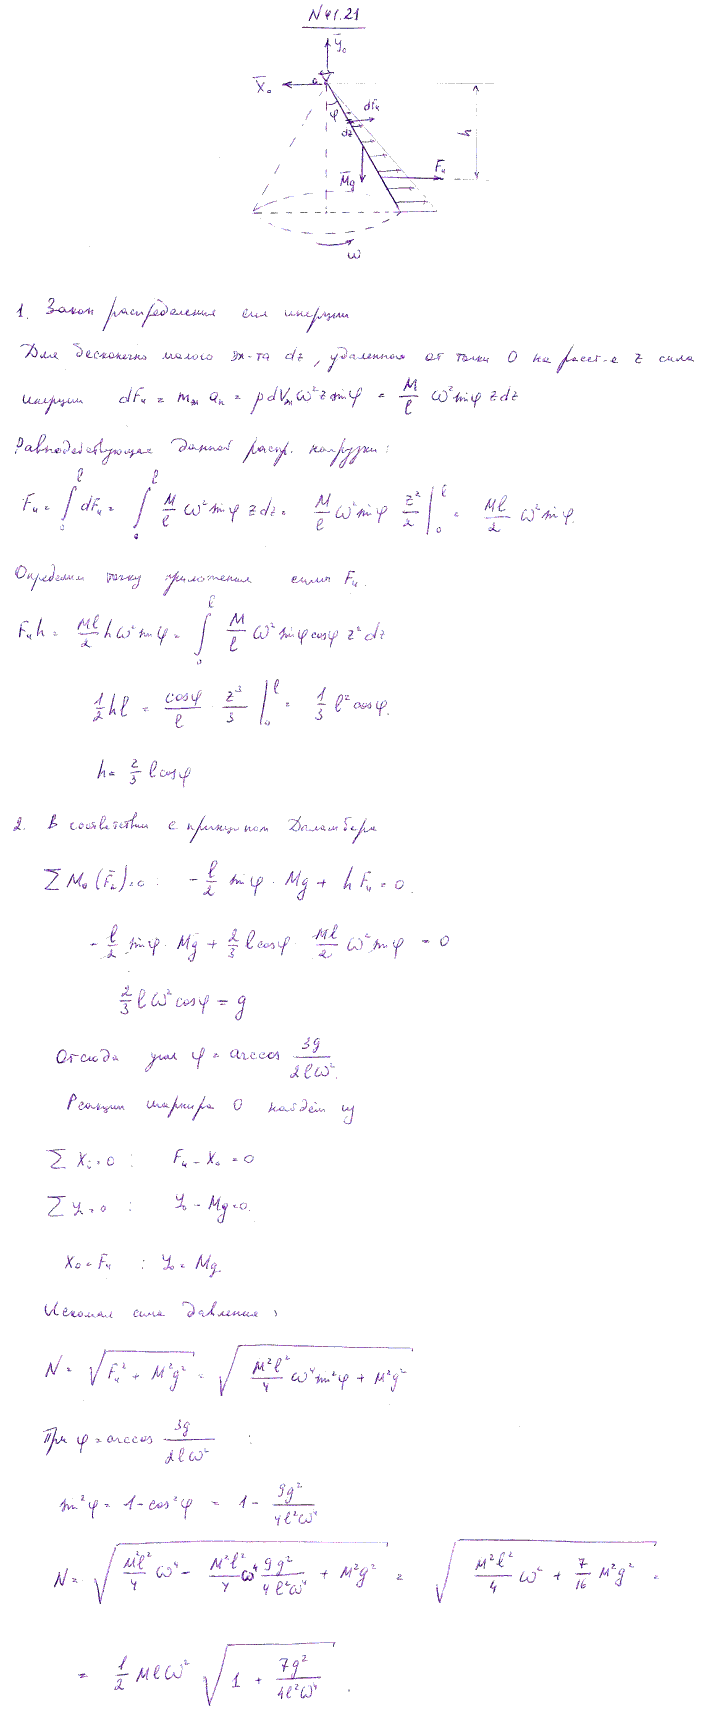 N41.21
Y₀
X₀
O
φ
dFи
dz
h
Mg
Fи
ω
1. Закон распределения сил инерции
Для бесконечно малого эл-та dz, удаленного от точки O на расст-е z сила
инерции dFи = mэл aп = ρdVэл ω²z sinφ = M/l ω² sinφ z dz
Равнодействующая данной распр. нагрузки:
Fи = ∫₀ˡ dFи = ∫₀ˡ M/l ω² sinφ z dz = M/l ω² sinφ z²/2 |₀ˡ = Ml/2 ω² sinφ.
Определим точку приложения силы Fи.
Fиh = Ml/2 hω² sinφ = ∫₀ˡ M/l ω² sinφ cosφ z² dz
1/2 hl = cosφ/l · z³/3 |₀ˡ = 1/3 l² cosφ.
h = 2/3 l cosφ
2. В соответствии с принципом Даламбера
∑ M₀ (F̄к) = 0 : - l/2 sinφ · Mg + h Fи = 0.
- l/2 sinφ · Mg + 2/3 l cosφ · Ml/2 ω² sinφ = 0
2/3 l ω² cosφ = g
Отсюда угол φ = arccos 3g/2lω².
Реакции шарнира O найдём из
∑ Xi = 0 : Fи - X₀ = 0
∑ Yi = 0 : Y₀ - Mg = 0.
X₀ = Fи ; Y₀ = Mg
Искомая сила давления:
N = √(Fи² + M²g²) = √(M²l²/4 ω⁴ sin²φ + M²g²)
При φ = arccos 3g/2lω² :
sin²φ = 1 - cos²φ = 1 - 9g²/4l²ω⁴
N = √(M²l²/4 ω⁴ - M²l²/4 ω⁴ 9g²/4l²ω⁴ + M²g²) = √(M²l²/4 ω² + 7/16 M²g²) =
= 1/2 Mlω² √(1 + 7g²/4l²ω⁴).